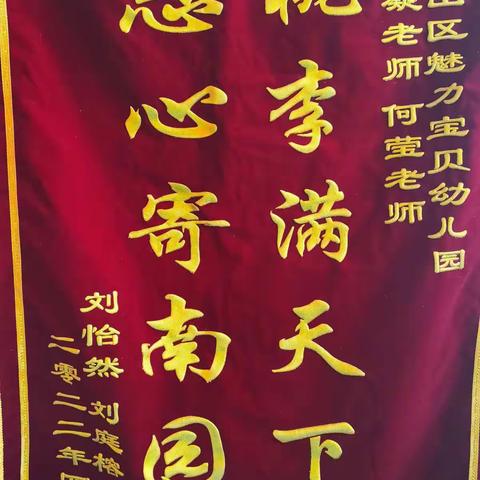 区魅力宝贝幼儿园
老师 何莹老师
桃李满天下
心寄南园
刘怡然 刘庭榕
二零二二年四